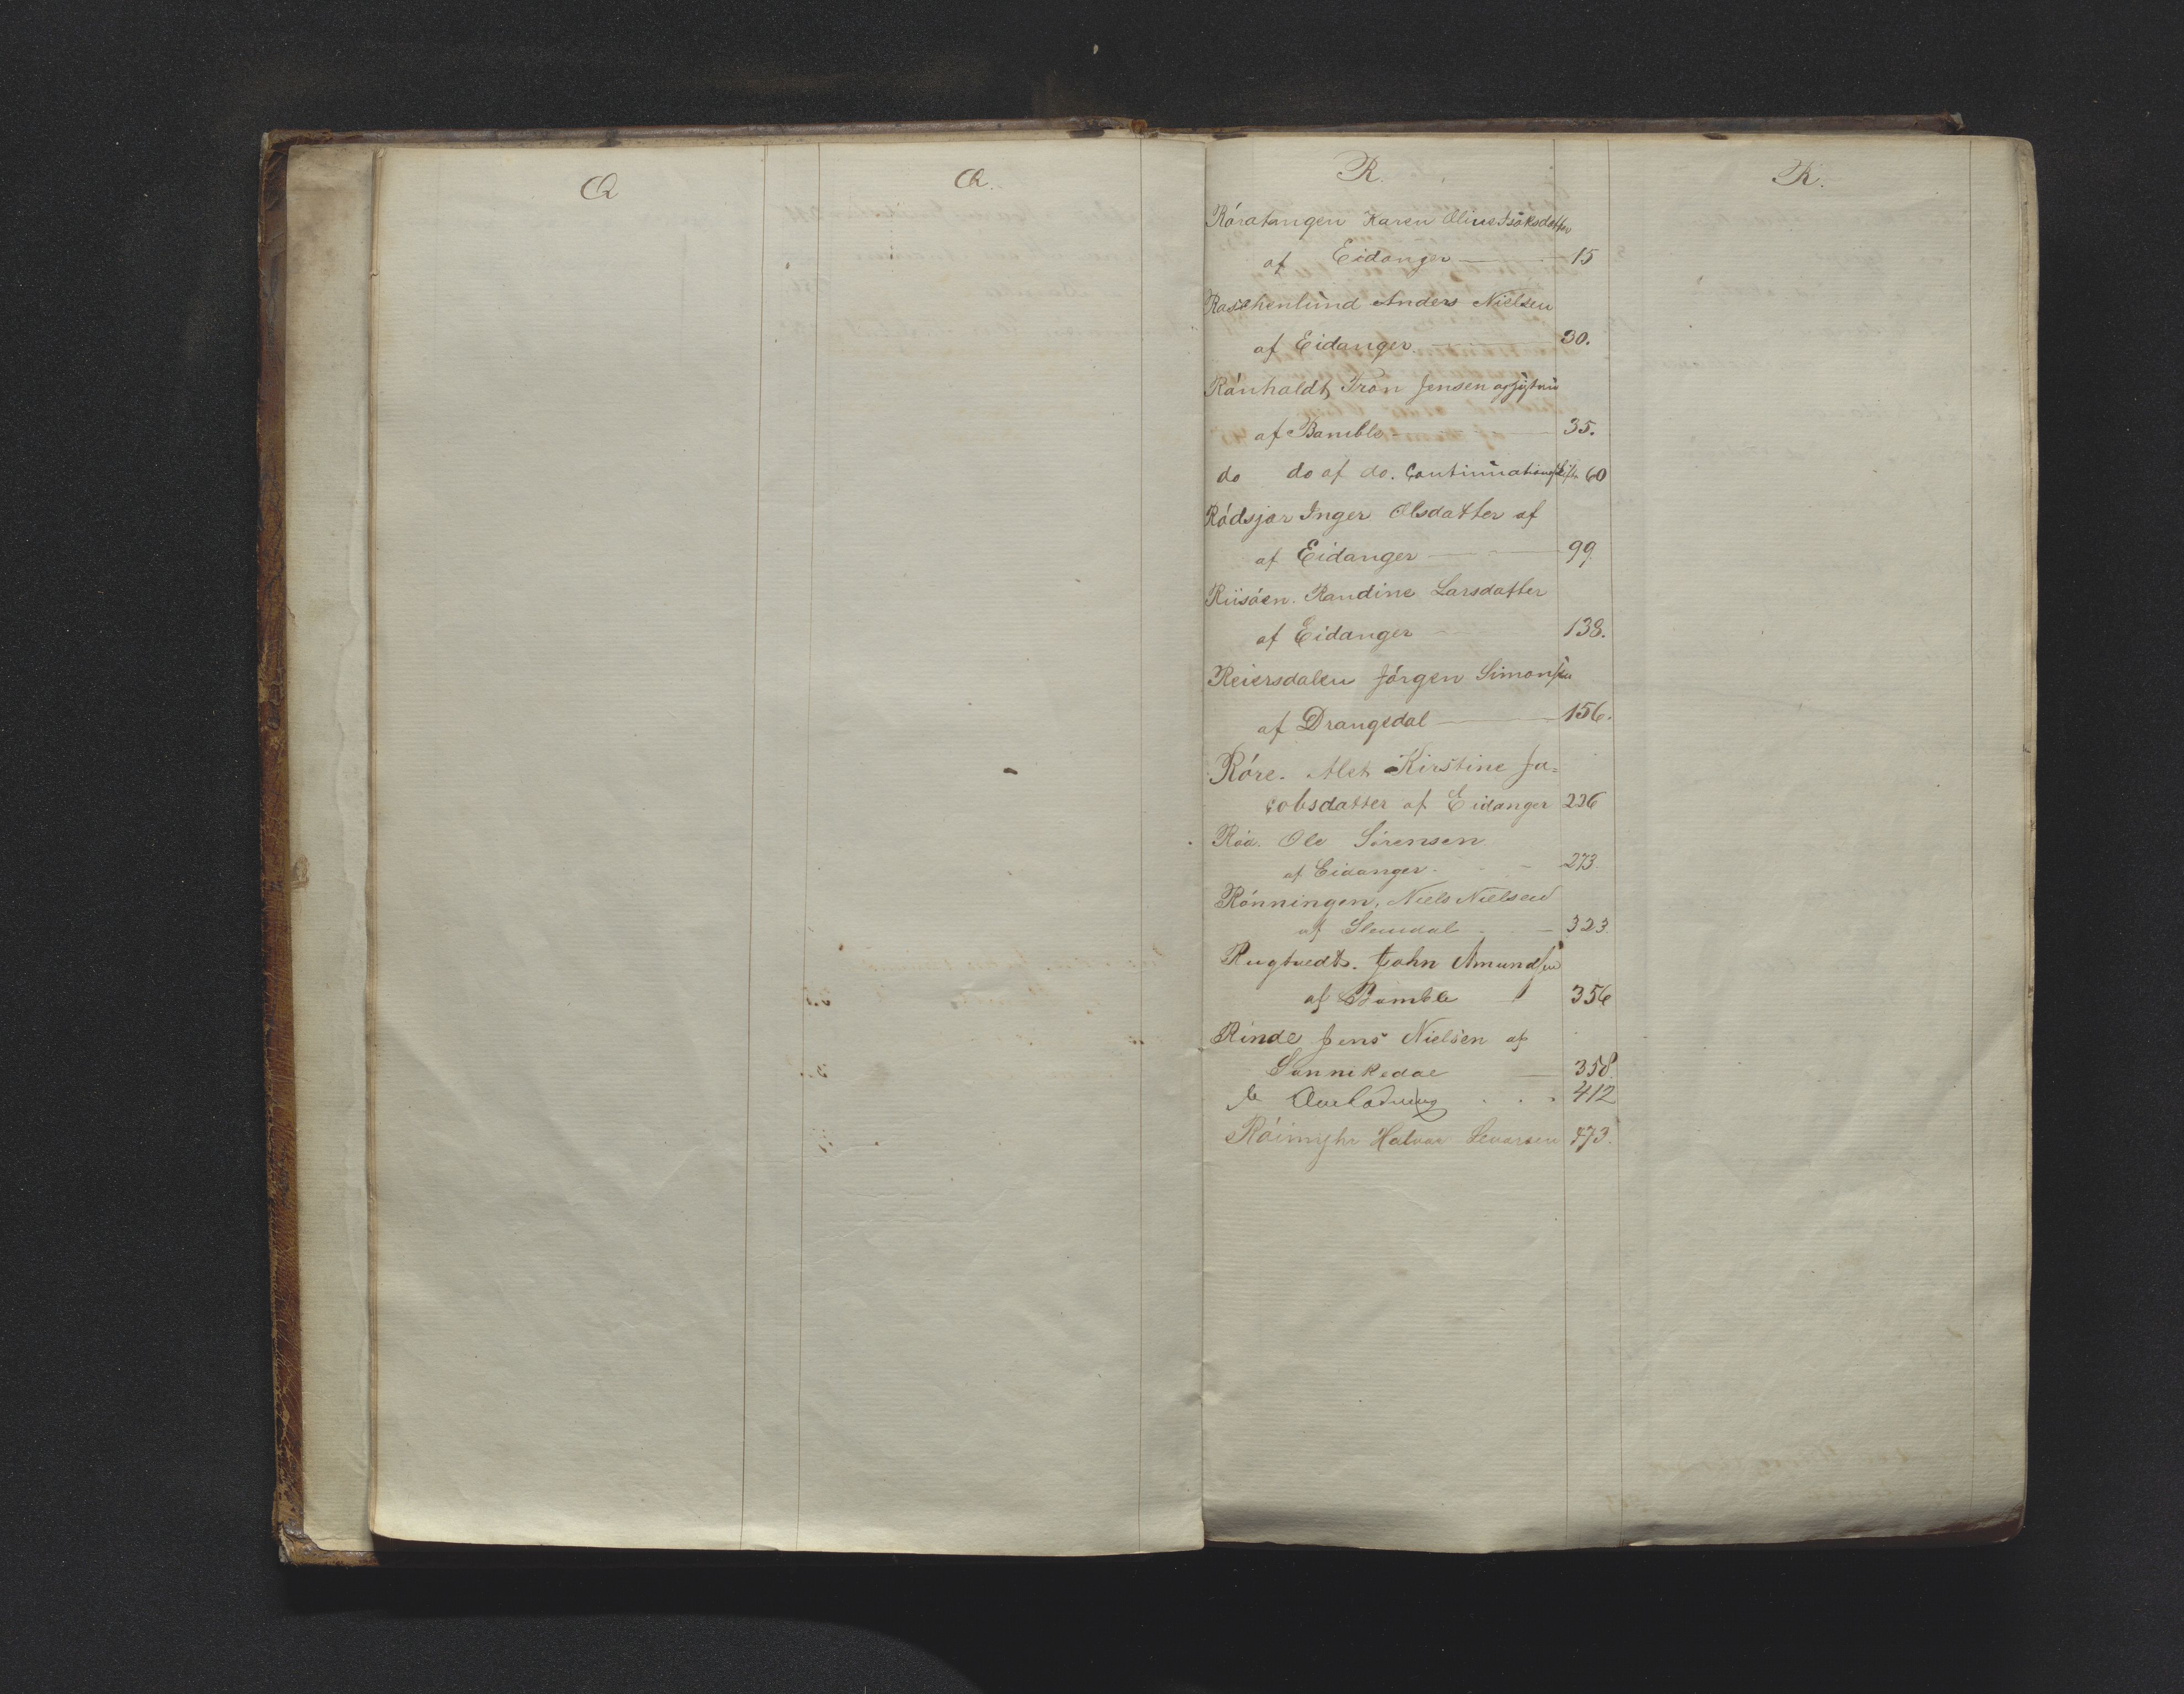 Q
Q.
R.
Róratangen Karen Oline Isaksdatter
af Eidanger 15
Raschenlund Anders Nielsen
af Eidanger. 30.
Rónholdt, Tron Jensen og Hustru
af Bamble 35.
do do af do. Continuationskifte 60
Ródsjor Inger Olsdatter af
af Eidanger 99
Riisóen. Randine Larsdatter
af Eidanger 138.
Reiersdalen Jórgen Simonsen
af Drangedal 156.
Róre. Alet Kirstine Ja=
cobsdatter af Eidanger 236
Róa. Ole Sórensen
af Eidanger. 273
Rónningen, Niels Nielsen
af Slemdal 323.
Rugtvedt. John Amundsen
af Bamble 356
Rinde Jens Nielsen af
Sannikedal 358.
do Omlodning 412
Róimyhr Halvor Sevarsen 473.
R.